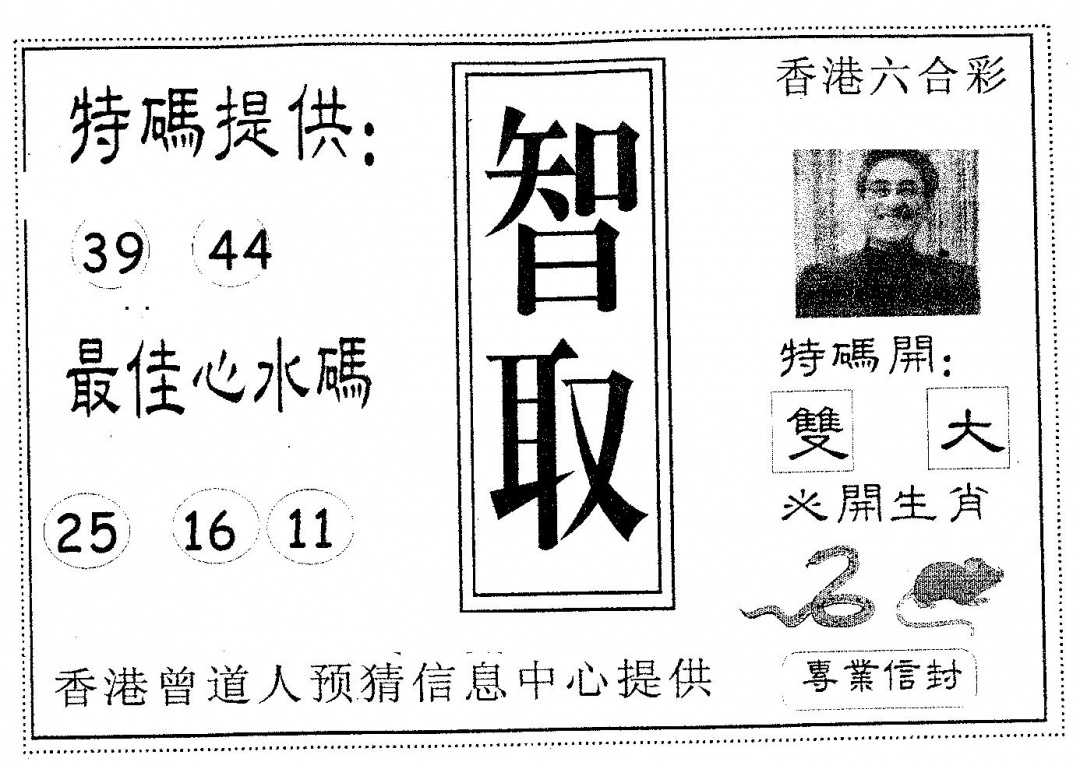 特碼提供：
39 44
最佳心水碼
25 16 11
智取
香港六合彩
特碼開：
雙 大
必開生肖
專業信封
香港曾道人预猜信息中心提供